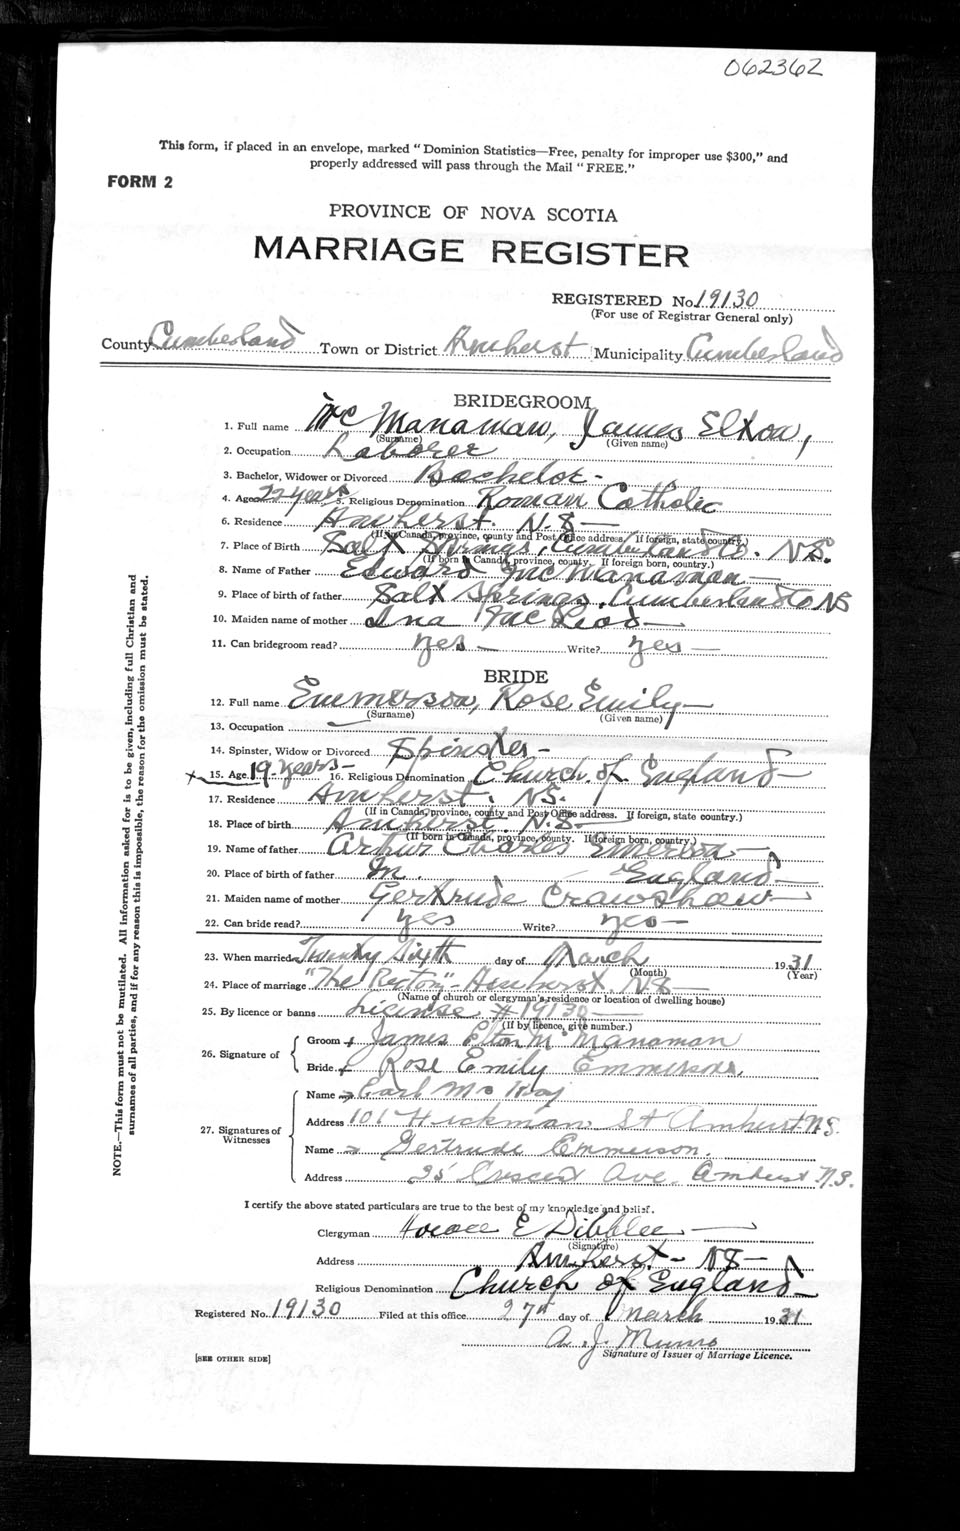 062362
This form, if placed in an envelope, marked "Dominion Statistics—Free, penalty for improper use $300," and
properly addressed will pass through the Mail "FREE."
FORM 2
PROVINCE OF NOVA SCOTIA
MARRIAGE REGISTER
REGISTERED No. 19130
(For use of Registrar General only)
County Cumberland Town or District Amherst Municipality Cumberland
BRIDEGROOM
1. Full name McManaman, James Elton,
(Surname) (Given name)
2. Occupation Laborer
3. Bachelor, Widower or Divorced Bachelor -
4. Age 22 years 5. Religious Denomination Roman Catholic
6. Residence Amherst. N.S —
(If in Canada, province, county and Post Office address. If foreign, state country.)
7. Place of Birth Salt Springs, Cumberland Co. N.S.
(If born in Canada, province, county. If foreign born, country.)
8. Name of Father Edward McManaman —
9. Place of birth of father Salt Springs. Cumberland Co NS
10. Maiden name of mother Ina McLeod —
11. Can bridegroom read? yes — Write? yes —
BRIDE
12. Full name Emmerson, Rose Emily —
(Surname) (Given name)
13. Occupation —
14. Spinster, Widow or Divorced Spinster -
x 15. Age 19 years - 16. Religious Denomination Church of England —
17. Residence Amherst. NS.
(If in Canada, province, county and Post Office address. If foreign, state country.)
18. Place of birth Amherst N.S —
(If born in Canada, province, county. If foreign born, country.)
19. Name of father Arthur Charles Emerson —
20. Place of birth of father In. England —
21. Maiden name of mother Gertrude Crawshaw —
22. Can bride read? yes Write? yes —
23. When married Twenty Sixth day of March 1931
(Month) (Year)
24. Place of marriage "The Rectory" Amherst. NS —
(Name of church or clergyman's residence or location of dwelling house)
25. By licence or banns License # 19130 —
(If by licence, give number.)
26. Signature of
Groom James Elton McManaman
Bride Rose Emily Emmerson.
27. Signatures of Witnesses
Name Earl McKay
Address 101 Hickman St Amherst N.S.
Name Gertrude Emmerson.
Address 25 Crescent Ave. Amherst N.S.
I certify the above stated particulars are true to the best of my knowledge and belief.
Clergyman Horace E Dibblee —
(Signature)
Address Amherst - NS —
Religious Denomination Church of England —
Registered No. 19130 Filed at this office 27th day of March 1931
A. J. Munro
Signature of Issuer of Marriage Licence.
[SEE OTHER SIDE]
NOTE.—This form must not be mutilated. All information asked for is to be given, including full Christian and
surnames of all parties, and if for any reason this is impossible, the reason for the omission must be stated.